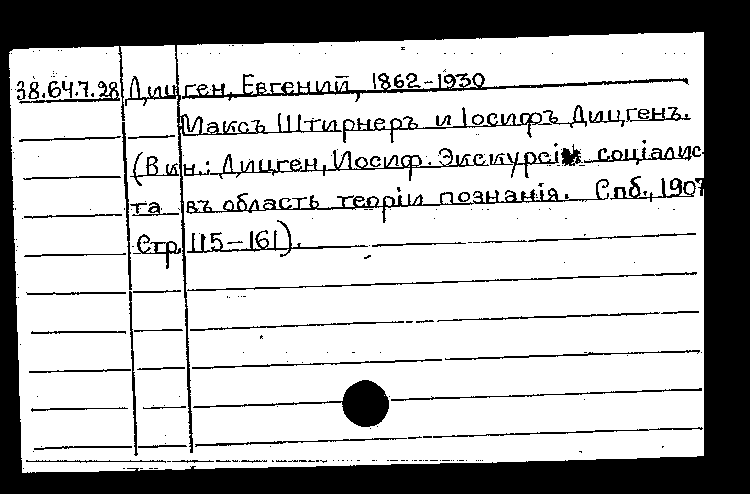 38.64.7.28 Дицген, Евгений, 1862-1930
Максъ Штирнеръ и Іосифъ Дицгенъ.
(В кн.: Дицген, Иосиф. Экскурсіи соціалис-
та въ область теоріи познанія. Спб., 1907
Стр. 115-161).